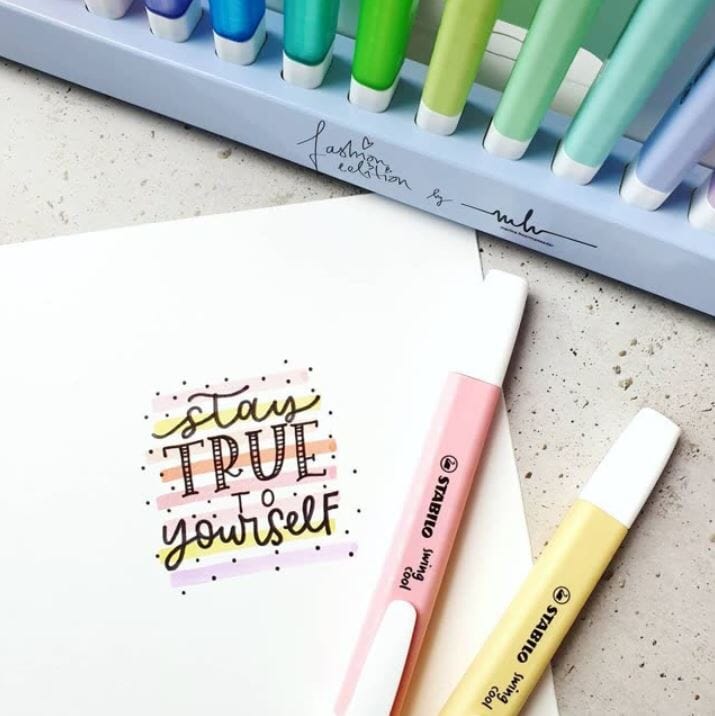 fashion
edition by mh
stay
TRUE
TO
yourself
STABILO swing cool
STABILO swing cool